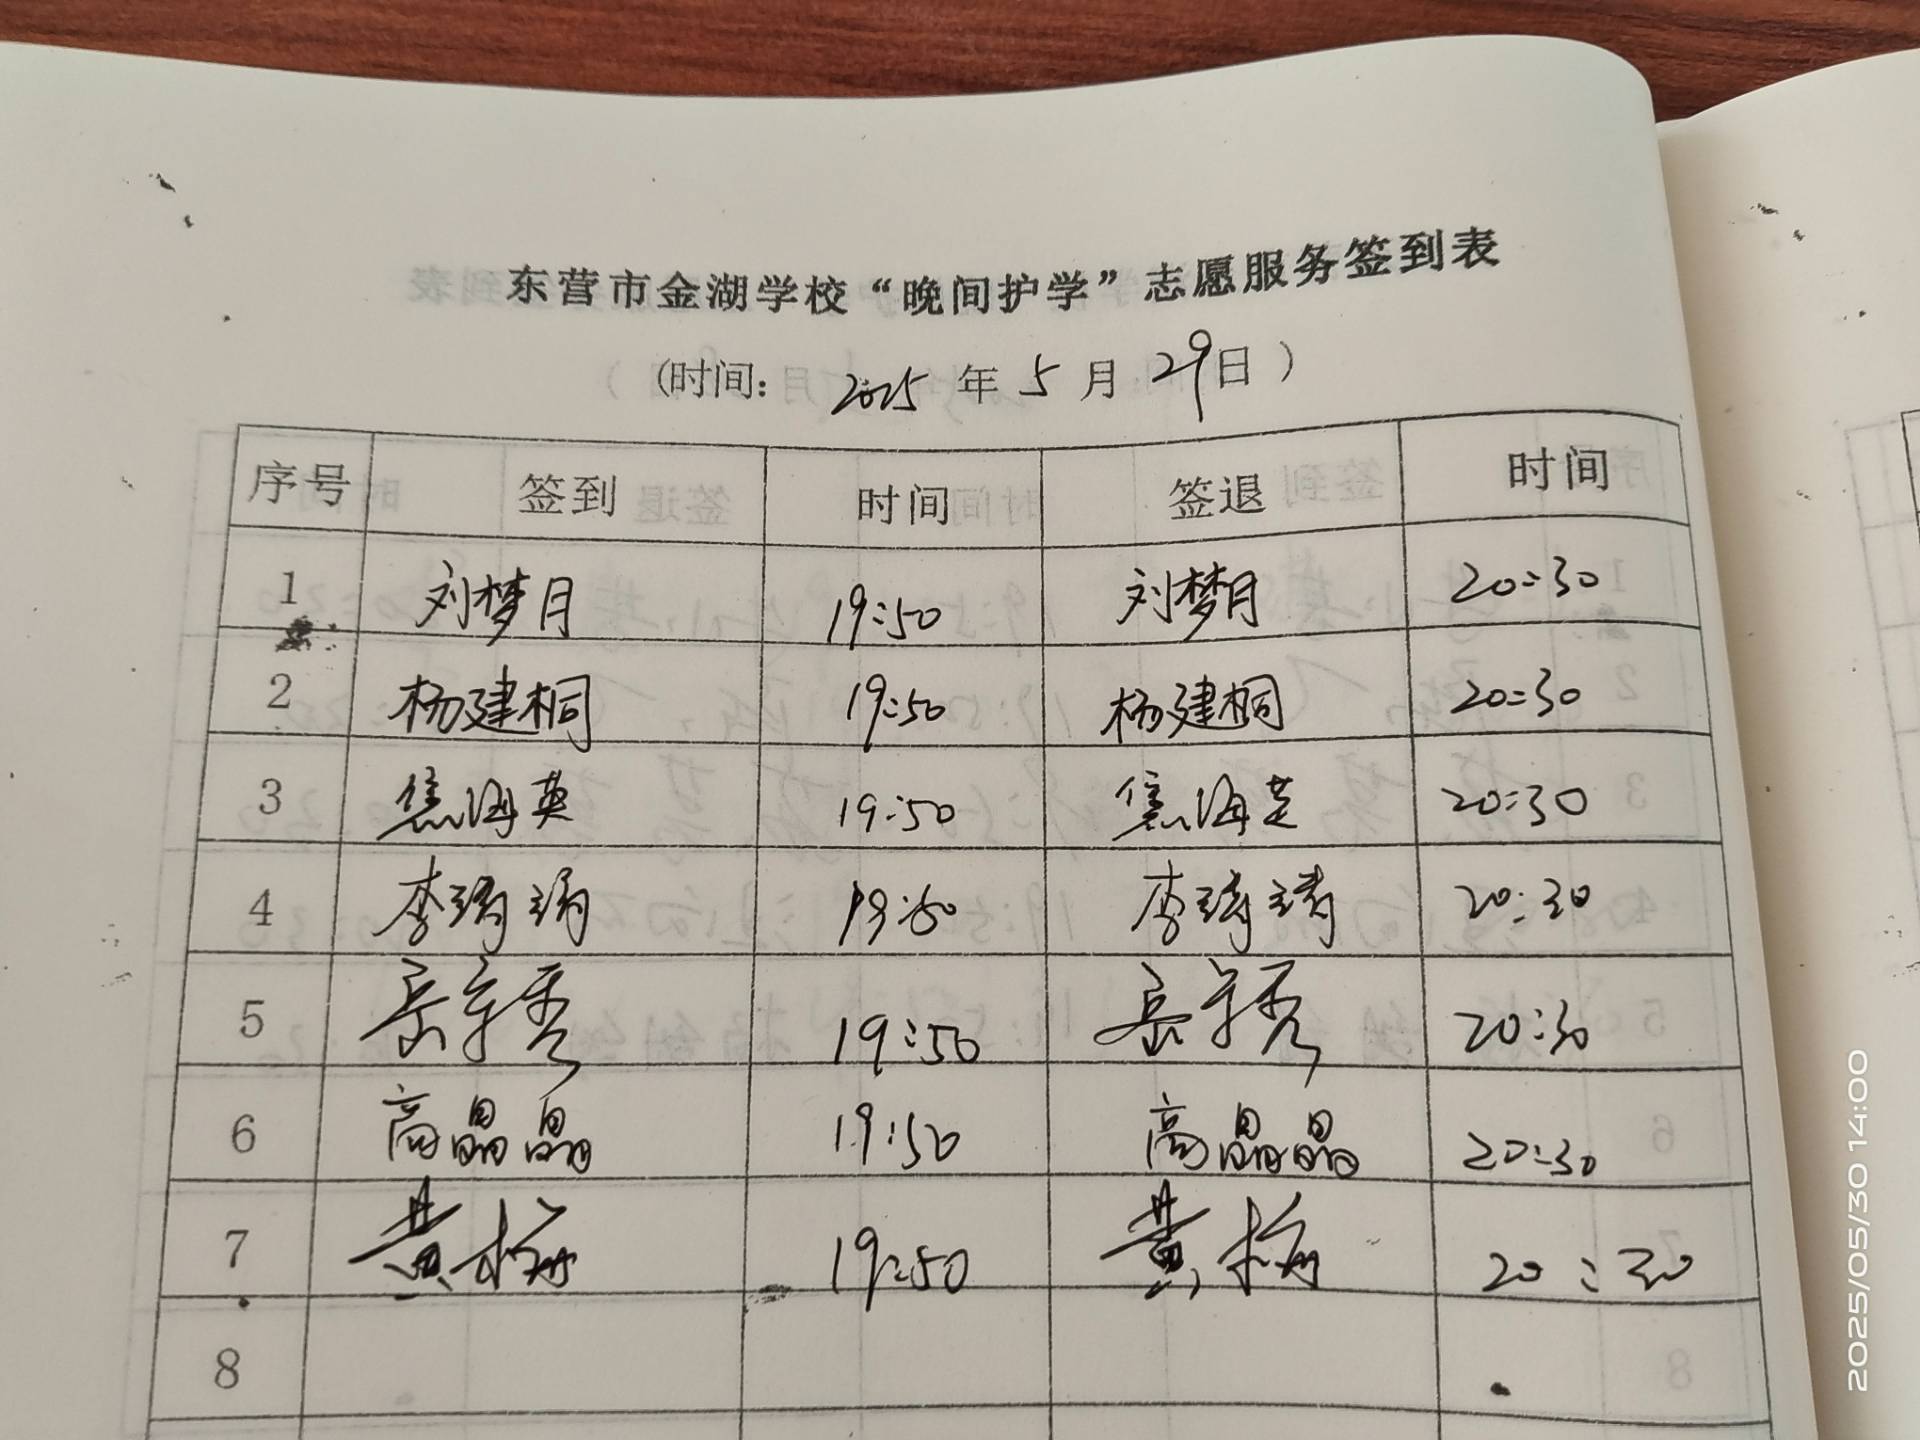 东营市金湖学校“晚间护学”志愿服务签到表
(时间: 2025 年 5 月 29 日 )
序号 签到 时间 签退 时间
1 刘梦月 19:50 刘梦月 20:30
2 杨建桐 19:50 杨建桐 20:30
3 焦海英 19:50 焦海英 20:30
4 李 19:50 李 20:30
5 19:50 20:30
6 高晶晶 19:50 高晶晶 20:30
7 黄梅 19:50 黄梅 20:30
8
2025/05/30 14:00